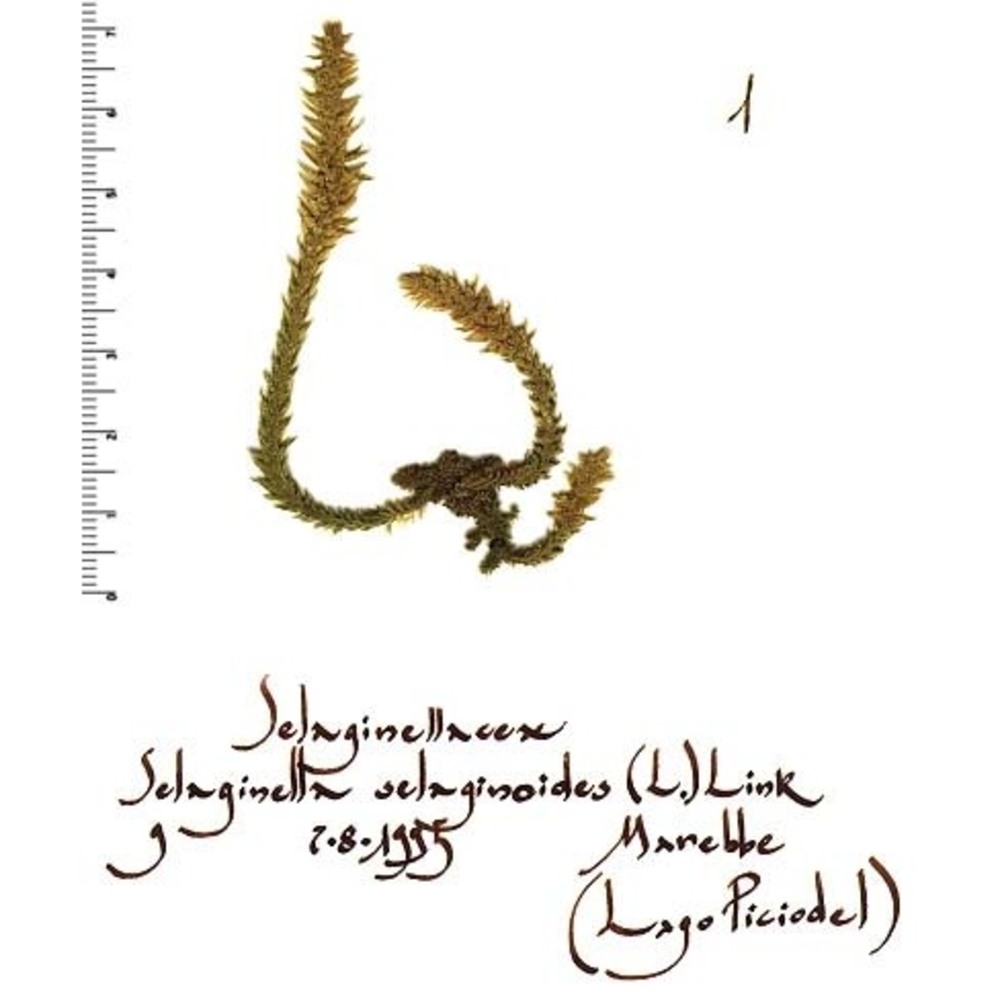 1
7
6
5
4
3
2
1
0
Selaginellaceae
Selaginella selaginoides (L.) Link
g 7.8.1995 Marebbe
(Lago Piciodel)